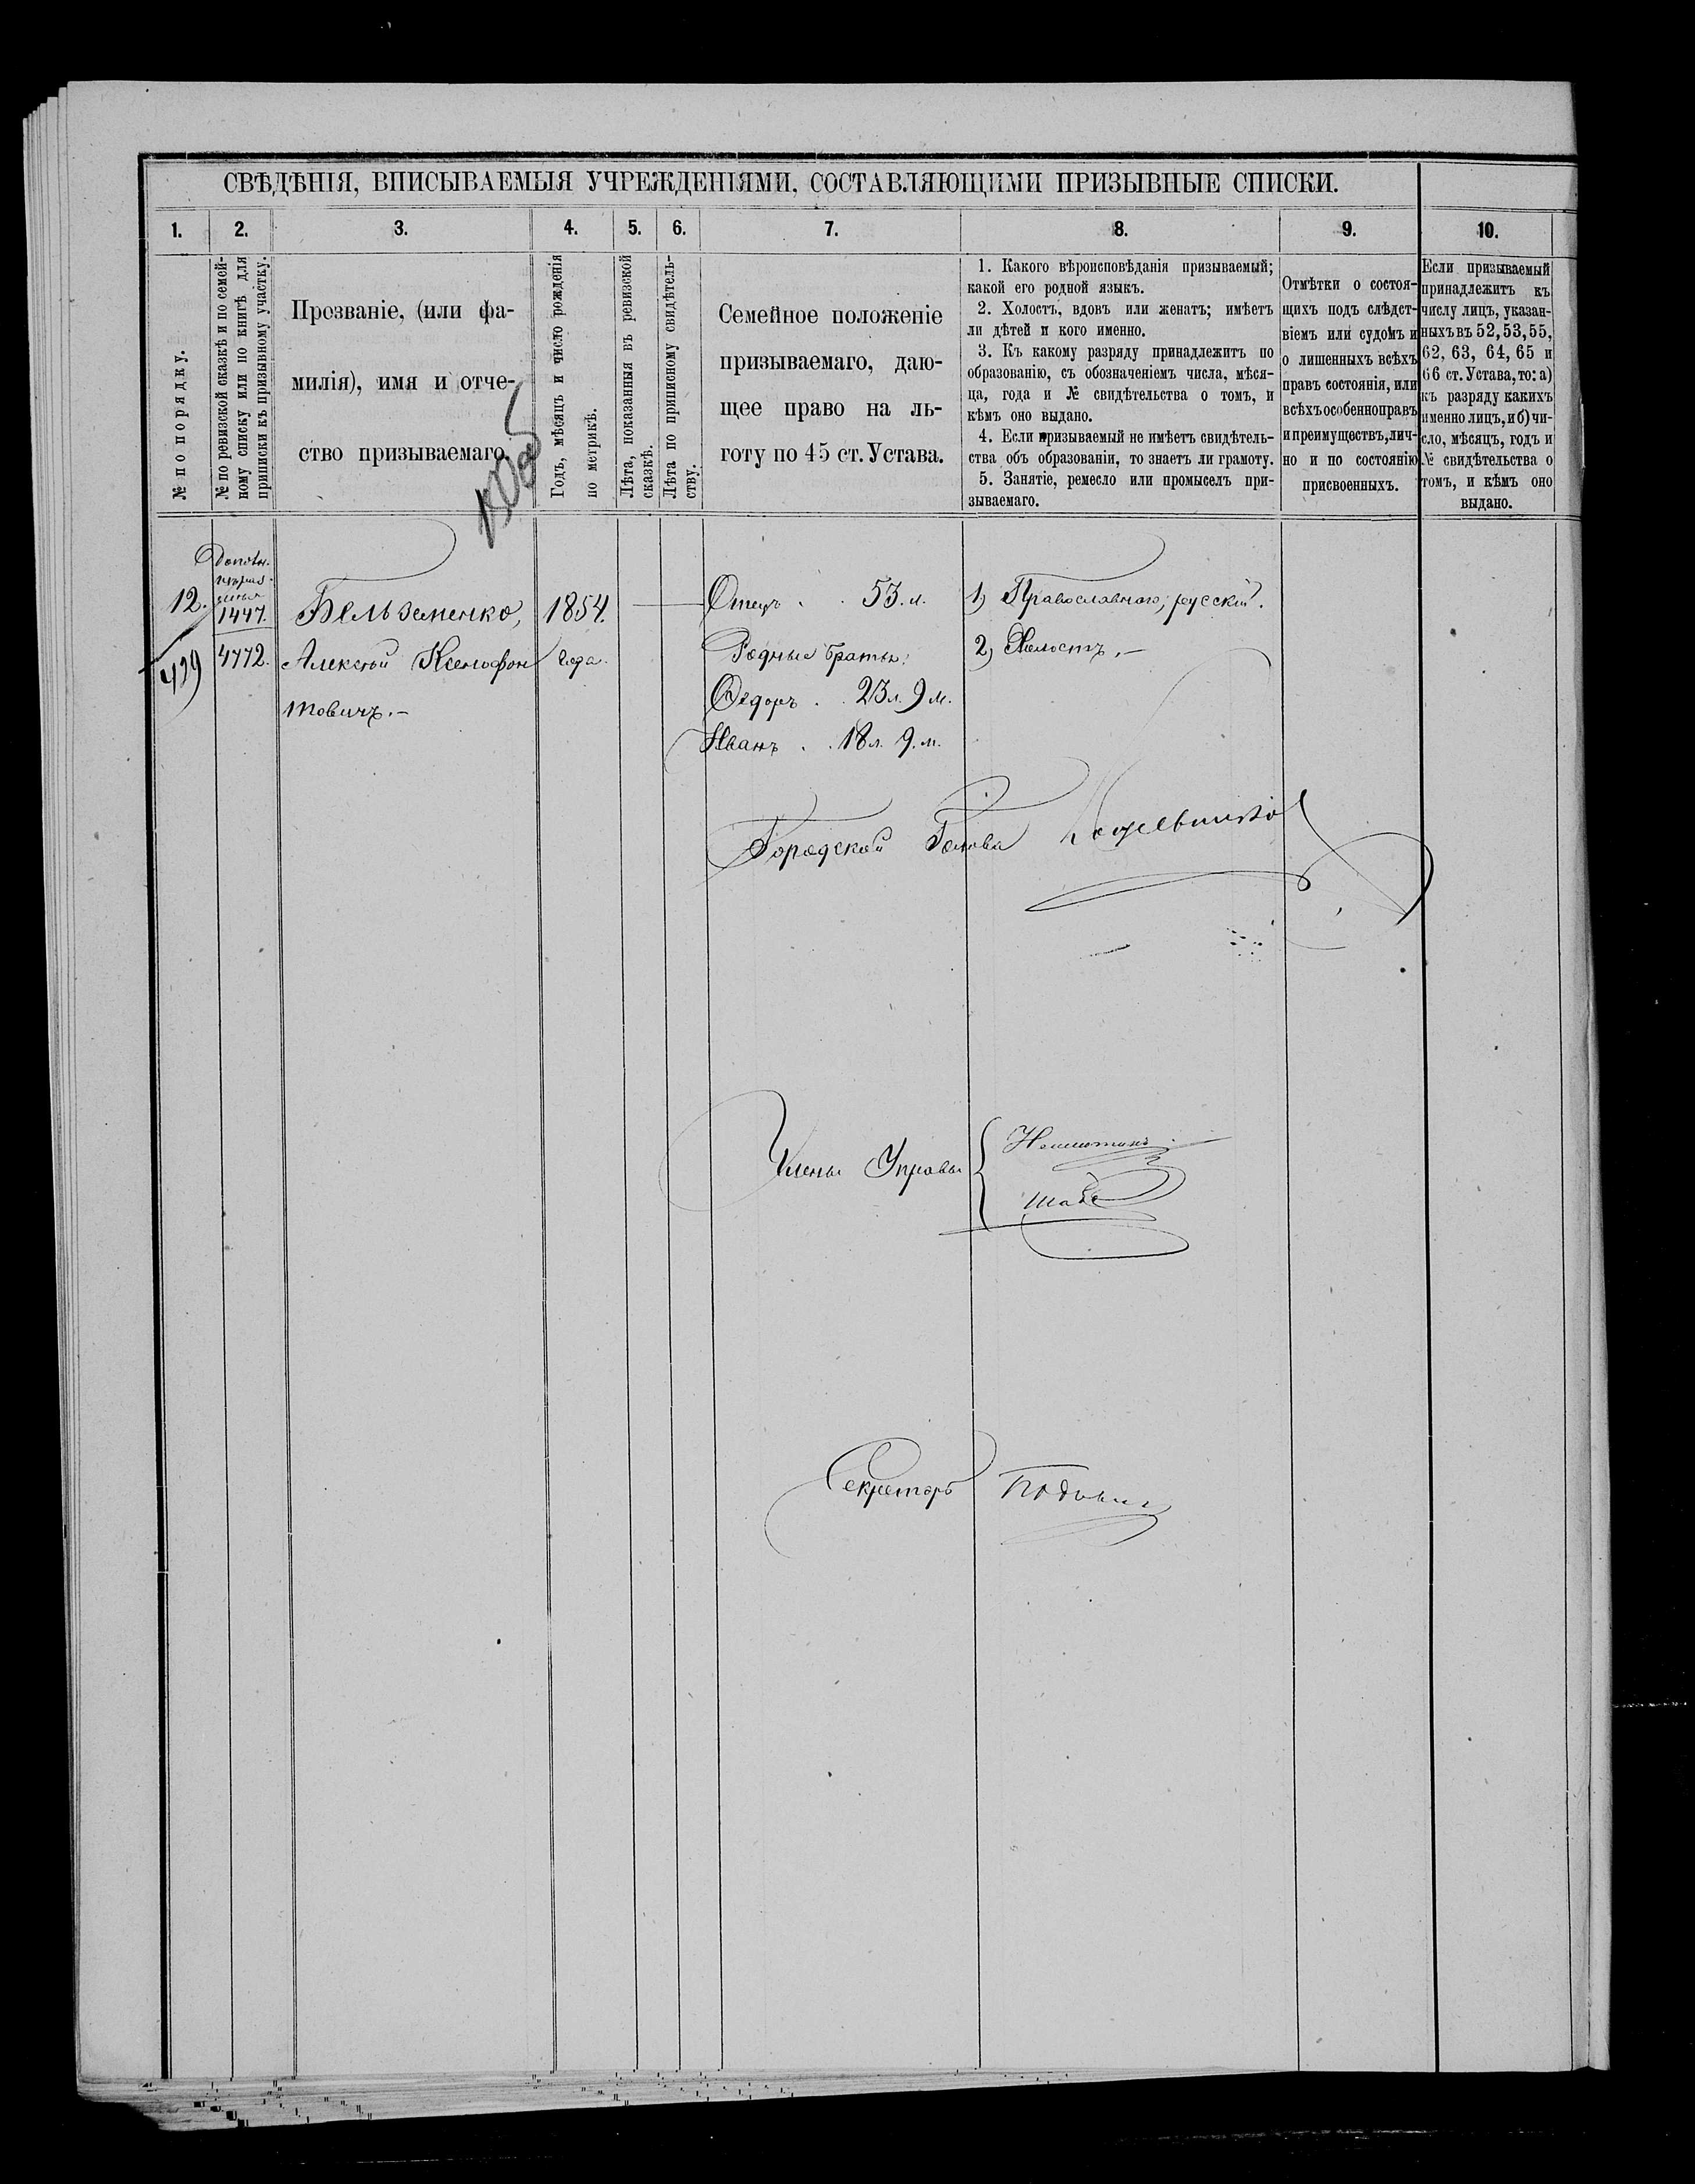 СВѢДѢНІЯ, ВПИСЫВАЕМЫЯ УЧРЕЖДЕНІЯМИ, СОСТАВЛЯЮЩИМИ ПРИЗЫВНЫЕ СПИСКИ.
1. 2. 3. 4. 5. 6. 7. 8. 9. 10.
№ по порядку.
№ по ревизской сказкѣ и по семей-
ному списку или по книгѣ для
приписки къ призывному участку.
Прозваніе, (или фа-
милія), имя и отче-
ство призываемаго.
Годъ, мѣсяцъ и число рожденія
по метрикѣ.
Лѣта, показанныя въ ревизской
сказкѣ.
Лѣта по приписному свидѣтель-
ству.
Семейное положеніе
призываемаго, даю-
щее право на ль-
готу по 45 ст. Устава.
1. Какого вѣроисповѣданія призываемый;
какой его родной языкъ.
2. Холостъ, вдовъ или женатъ; имѣетъ
ли дѣтей и кого именно.
3. Къ какому разряду принадлежитъ по
образованію, съ обозначеніемъ числа, мѣся-
ца, года и № свидѣтельства о томъ, и
кѣмъ оно выдано.
4. Если призываемый не имѣетъ свидѣтель-
ства объ образованіи, то знаетъ ли грамоту.
5. Занятіе, ремесло или промыселъ при-
зываемаго.
Отмѣтки о состоя-
щихъ подъ слѣдст-
віемъ или судомъ и
о лишенныхъ всѣхъ
правъ состоянія, или
всѣхъ особенно правъ
и преимуществъ, лич-
но и по состоянію
присвоенныхъ.
Если призываемый
принадлежитъ къ
числу лицъ, указан-
ныхъ въ 52, 53, 55,
62, 63, 64, 65 и
66 ст. Устава, то: а)
къ разряду какихъ
именно лицъ, и б) чи-
сло, мѣсяцъ, годъ и
№ свидѣтельства о
томъ, и кѣмъ оно
выдано.
12.
1447.
4772.
Бельземенко,
Алексѣй Ксенофон
товичъ.-
1854.
года.
Отецъ . . 53. л.
Родные братья:
Ѳедоръ . . 23 л. 9 м.
Иванъ . . 18 л. 9. м.
1) Православнаго, русскій.
2) Холостъ.-
Городской Голова
Члены Управы
Секретарь